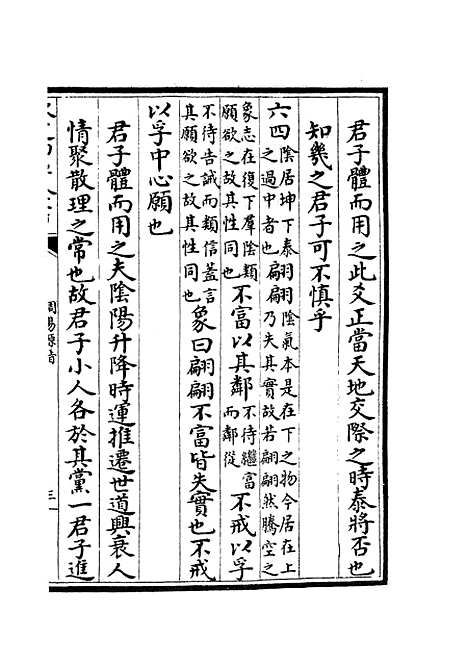 君子體而用之此爻正當天地交際之時泰將否也
知幾之君子可不慎乎
六四陰居坤下泰之過中者也翩翩陰氣本是在下之物今居在上乃失其實故若翩翩然騰空之
象志在復下羣陰類願欲之故其性同也不富以其鄰不待繼富而鄰從不戒以孚
不待告誡而類信蓋言其願欲之故其性同也象曰翩翩不富皆失實也不戒
以孚中心願也
君子體而用之夫陰陽升降時運推遷世道興衰人
情聚散理之常也故君子小人各於其黨一君子進
周易
三